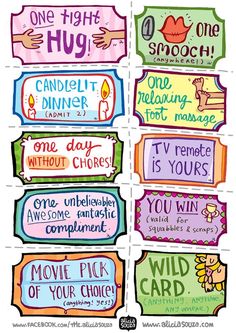 ONE TIGHT
HUG!
1 ONE
SMOOCH!
(anywhere!)
CANDLELIT
DINNER
(ADMIT 2)
one
relaxing
foot massage
one day
WITHOUT CHORES!
TV REMOTE
IS YOURS.
one unbelievably
Awesome fantastic
compliment.
YOU WIN
(valid for
squabbles & scraps)
MOVIE PICK
OF YOUR CHOICE!
(anything! yes!)
WILD
CARD.
(ANYTHING, ANYTIME,
ANY WHERE)
www.FACEBOOK.com/the.aliciasouza
alicia
souza
www.aliciasouza.com